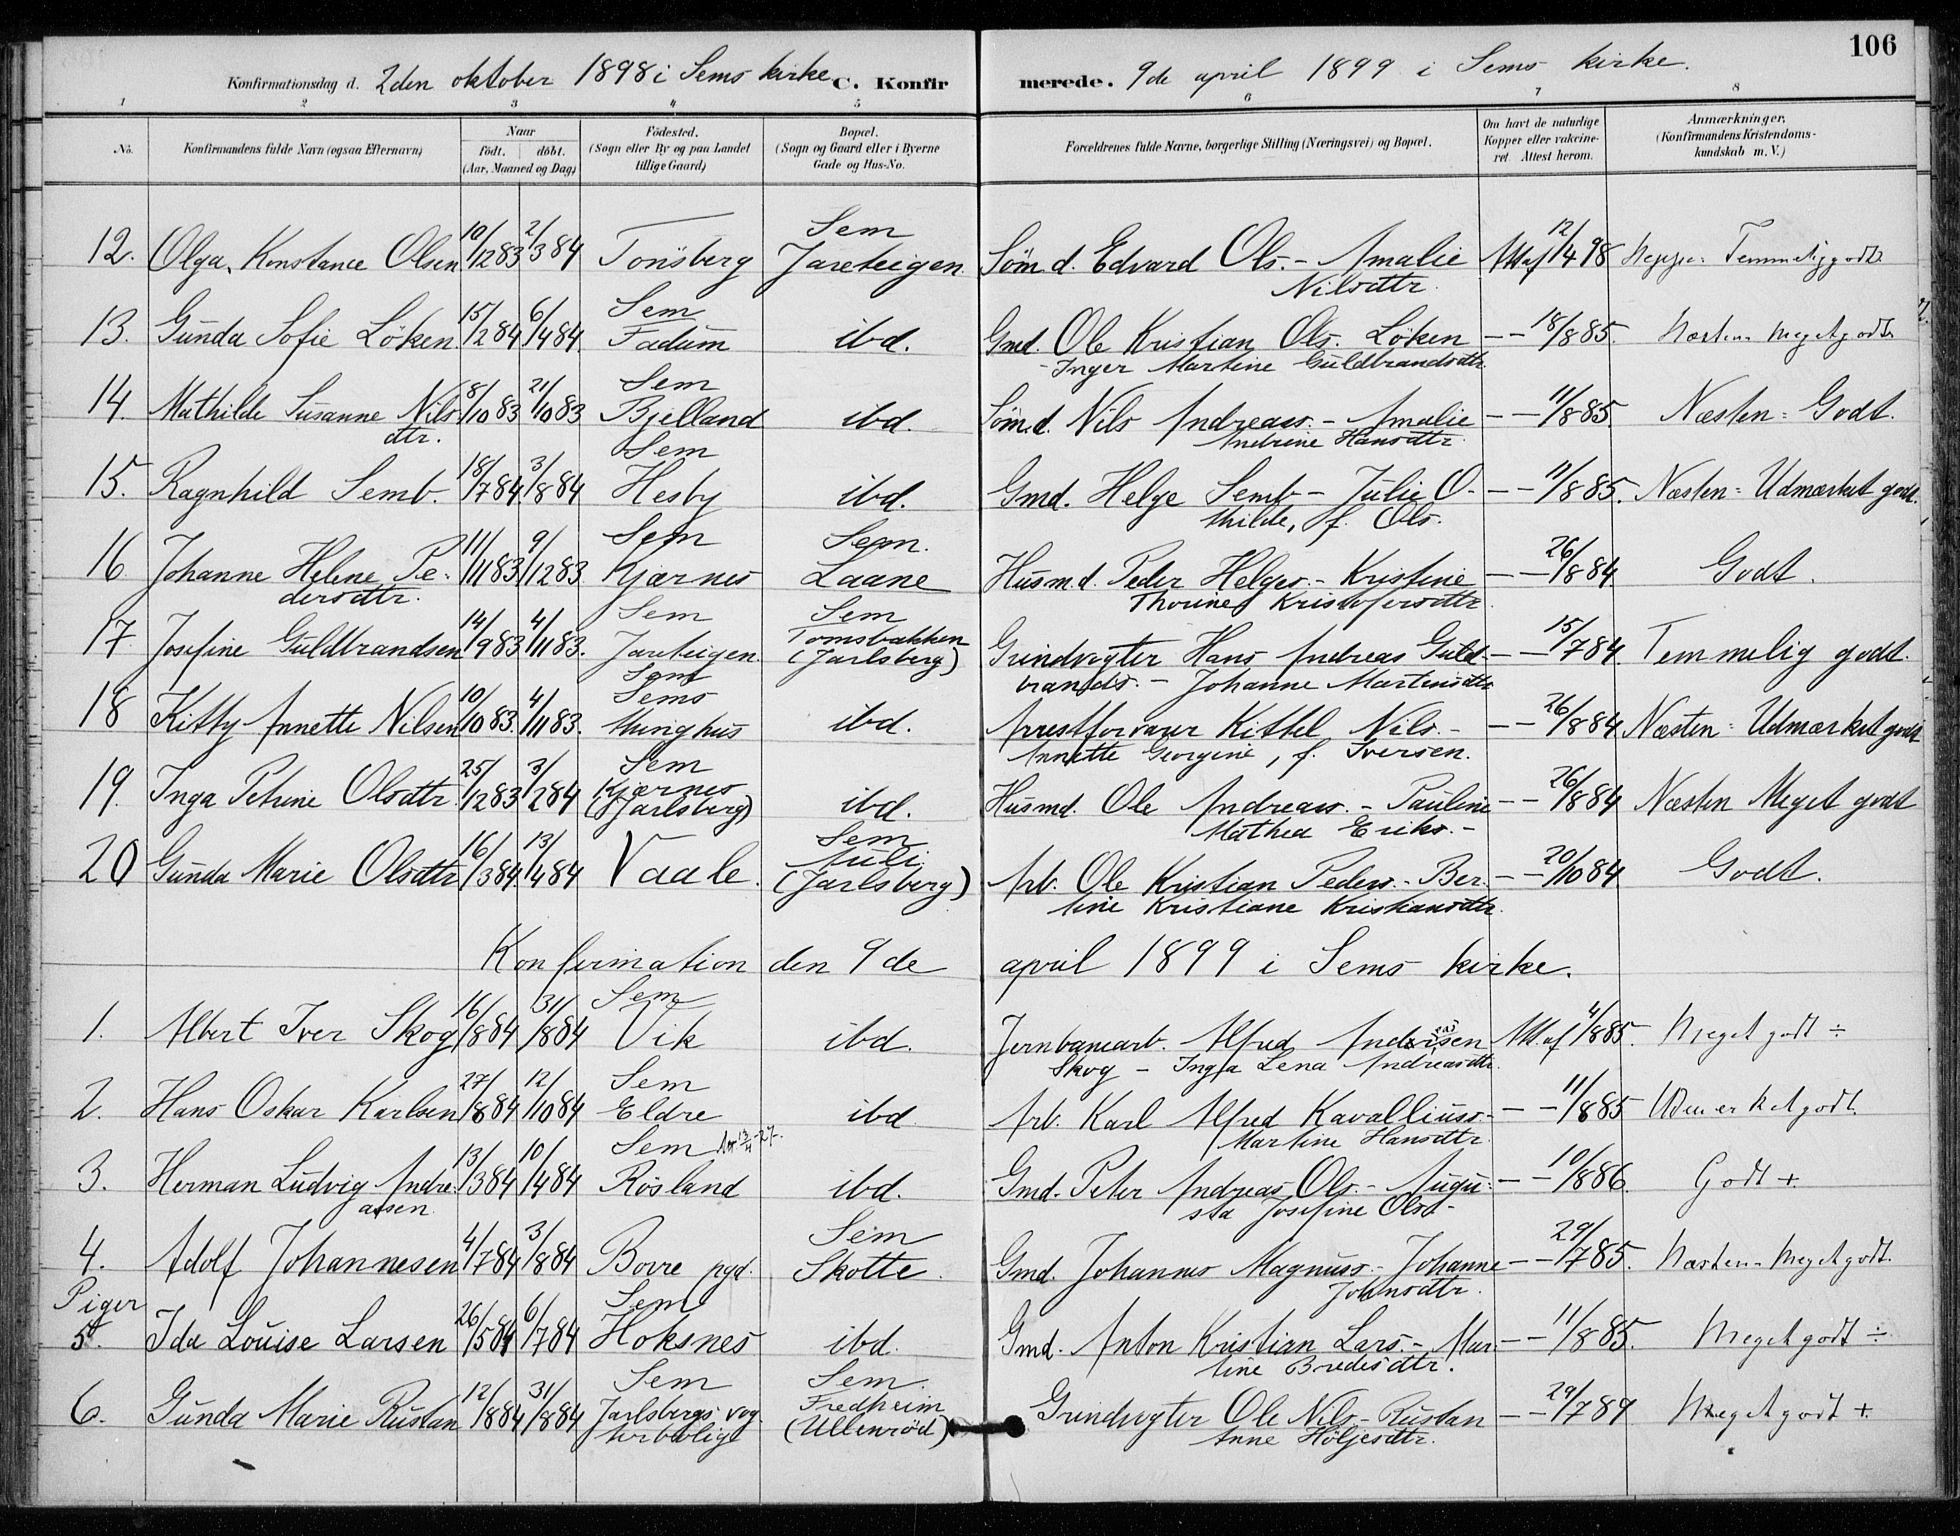 106
Konfirmationsdag d. 2den oktober 1898 i Sems kirke C. Konfirmerede. 9de april 1899 i Sems kirke.
1 2 3 4 5 6 7 8
No. Konfirmandens fulde Navn (ogsaa Efternavn) Naar født. døbt. (Aar, Maaned og Dag) Fødested. (Sogn eller By og paa Landet tillige Gaard) Bopæl. (Sogn og Gaard eller i Byerne Gade og Hus-No. Forældrenes fulde Navne, borgerlige Stilling (Næringsvei) og Bopæl. Om havt de naturlige Kopper eller vakcineret. Attest herom. Anmærkninger. (Konfirmandens Kristendomskundskab m. V.)
12. Olga Konstance Olsen 10/12 83 2/3 84 Tönsberg Sem Jareteigen Söm d. Edvard Ols. - Amalie Nilsdtr. Att af 12/4 98 Neppe Temmelig godt.
13. Gunda Sofie Löken 15/2 84 6/4 84 Sem Fadum ibd. Gmd. Ole Kristian Ols. Löken - Inger Martine Guldbrandsdtr. — — 18/8 85. Næsten Meget godt.
14. Mathilde Susanne Nilsdtr. 8/10 83 21/10 83 Sem Bjelland ibd. Söm.d. Nils Andreass. - Amalie Andrine Hansdtr. — — 11/8 85. Næsten = Godt.
15. Ragnhild Semb. 18/7 84 3/8 84 Sem Hesby ibd. Gmd. Helge Semb - Julie Othilde, f. Ols. — — 11/8 85. Næsten = Udmærket godt.
16 Johanne Helene Pedersdtr. 11/11 83 9/12 83 Sem Kjærnes Sem. Laane Husmd. Peder Helges. - Kristine Thorine Kristofersdtr. — — 26/8 84 Godt.
17 Josefine Guldbrandsen 14/9 83 4/11 83. Sem Jareteigen Sem Tomsbakken (Jarlsberg) Grindvogter Hans Andreas Guldbrands. - Johanne Martinsdtr. — — 15/7 84. Temmelig godt.
18 Kitty Annette Nilsen 10/10 83. 4/11 83. Sem Sems thinghus ibd. Arrestforvarer Kittel Nils. - Annette Georgine, f. Iversen. — — 26/8 84 Næsten = Udmærket godt
19. Inga Petrine Olsdtr. 25/12 83 3/2 84 Sem Kjærnes (Jarlsberg) ibd. Husmd. Ole Andreass. - Pauline Mathea Eriks. - — — 26/8 84 Næsten Meget godt
20 Gunda Marie Olsdtr 16/3 84 13/4 84 Vaale. Sem Auli (Jarlsberg) Arb. Ole Kristian Peders. - Bertine Kristiane Kristiansdtr. — — 20/10 84 Godt.
Konfirmation den 9de april 1899 i Sems kirke.
1. Albert Iver Skog 16/8 84 31/8 84 Sem Vik ibd. Jernbanearb. Alfred Andreasen Skog - Inga Lena Andreasdtr. Att af 4/8 85. Meget godt ÷
2. Hans Oskar Karlsen 27/8 84 12/10 84 Sem Eldre ibd Arb. Karl Alfred Kavalliuss. - Martine Hansdtr. — — 11/8 85 Udmerket godt.
3. Herman Ludvig Andreassen 13/3 84 10/4 84 Sem Rösland ibd. Gmd. Peter Andreas Ols. - Augusta Josefine Olsd - — — 10/8 86. Godt +
4. Adolf Johannesen 4/7 84 3/8 84 Borre pgd. Sem Skotte. Gmd. Johannes Magnuss. - Johanne Johnsdtr. — — 29/7 85. Næsten Meget godt.
Piger
5. Ida Louise Larsen 26/5 84 6/7 84 Sem Hoksnes ibd. Gmd. Anton Kristian Lars. - Martine Bredesdtr. — — 11/8 85. Meget godt ÷
6. Gunda Marie Rustan 12/8 84 31/8 84 Sem Jarlsbergs vogterbolig Sem. Fredheim (Ullenröd) Grindvogter Ole Nils. Rustan Anne Höljesdtr. — — 29/7 89 Meget godt +